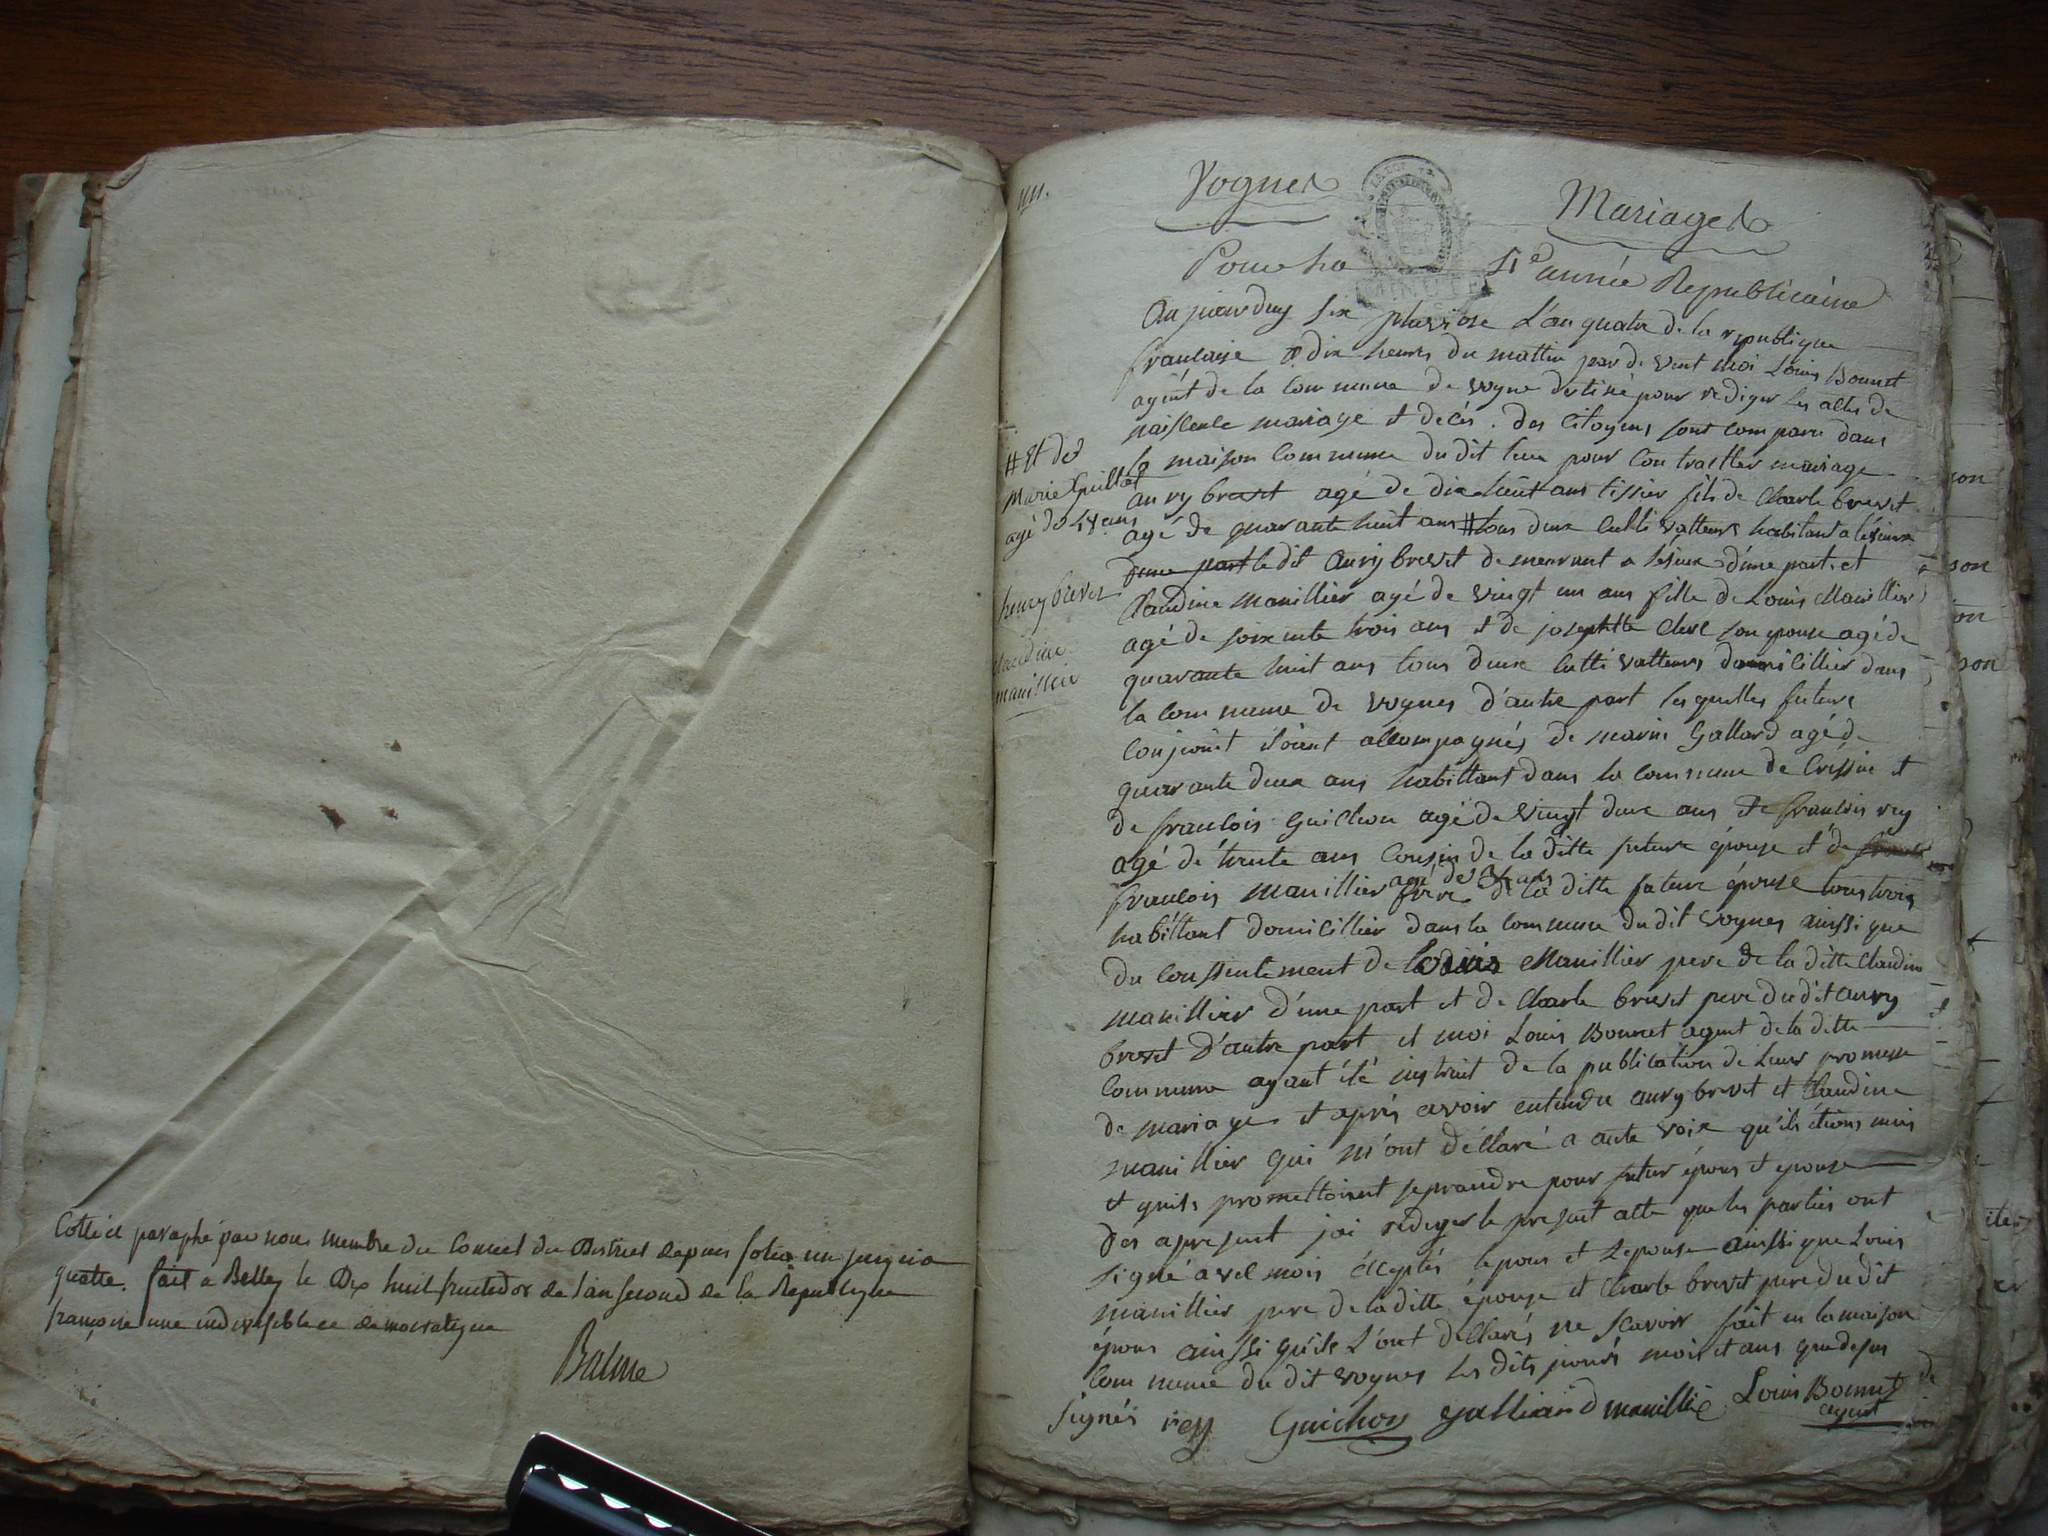 Cotté et paraphé par nous membre du Conseil du District depuis folio un jusqu'a
quatre. fait a Belley le Dix huit fructidor de l'an second de la Republique
françoise une indivisible et democratique
Balme
Vognes
Mariages
Pour la 4e année Republicaine
Aujourduy six pluviose L'an quatre de la republique
francaise a dix heures du mattin par de vent moi Louis Bonnet
agent de la commune de vogne destiné pour rediger les actes de
naiscence mariage et décés. des Citoyens sont comparu dans
la maison Commune du dit lieu pour Contracter mariage
aury brevet agé de dix huit ans tissier fils de Charle brevet
agé de quarante huit ans # tous deux cultivatteurs habitant a
d'une part le dit aury brevet demeurant a d'une part. et
Claudine manillier agé de vingt un ans fille de Louis Manillier
agé de soixente trois ans et de josephtte Clerc son epouse agé de
quarante huit ans tous deux cultivatteurs domicillier dans
la commune de vognes d'autre part les quelles future
conjoint étoient accompagnés de marin Gallard agé de
quarante deux ans habittant dans la commune de et
de francois Guichon agé de vingt deux ans de francois rey
agé de trente ans Cousin de la ditte future épouse et de
francois manillier agé de ans frère de la ditte future épouse tous trois
habittant domicillier dans la commune du dit vognes ainssi que
du conssentement de Louis Manillier pere de la ditte Claudine
manillier d'une part et de Charle brevet pere du dit aury
brevet D'autre part et moi Louis Bonnet agent de la ditte
Commune ayant été instruit de la publication de Leurs promesse
de mariage et aprés avoir entendu aury brevet et Claudine
manillier qui m'ont déclaré a aute voix qu'ils étions unis
et quils promettoient se prandre pour futur épous et epouse
Des apresent jai rediger le present acte que les parties ont
signé avec mois éceptés lepous et Lepouse ainssi que Louis
manillier pere de la ditte épouse et Charle brevet pere du dit
épous ainssi qu'ils L'ont déclarés ne scavoir fait en la maison
Commune du dit vognes les dits jours mois et ans que desus
signés rey Guichon galliand manillié Louis Bonnet
agent
# Et de
Marie Guillot
agé de ans
henry brevet
claudine
manillier